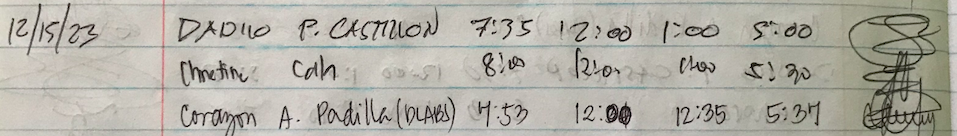 12/15/23 DADIVO P. CASTILLON 7:35 12:00 1:00 5:00
Christine Cah 8:00 12:00 1:00 5:30
Corazon A. Padilla (DLABS) 7:53 12:00 12:35 5:37